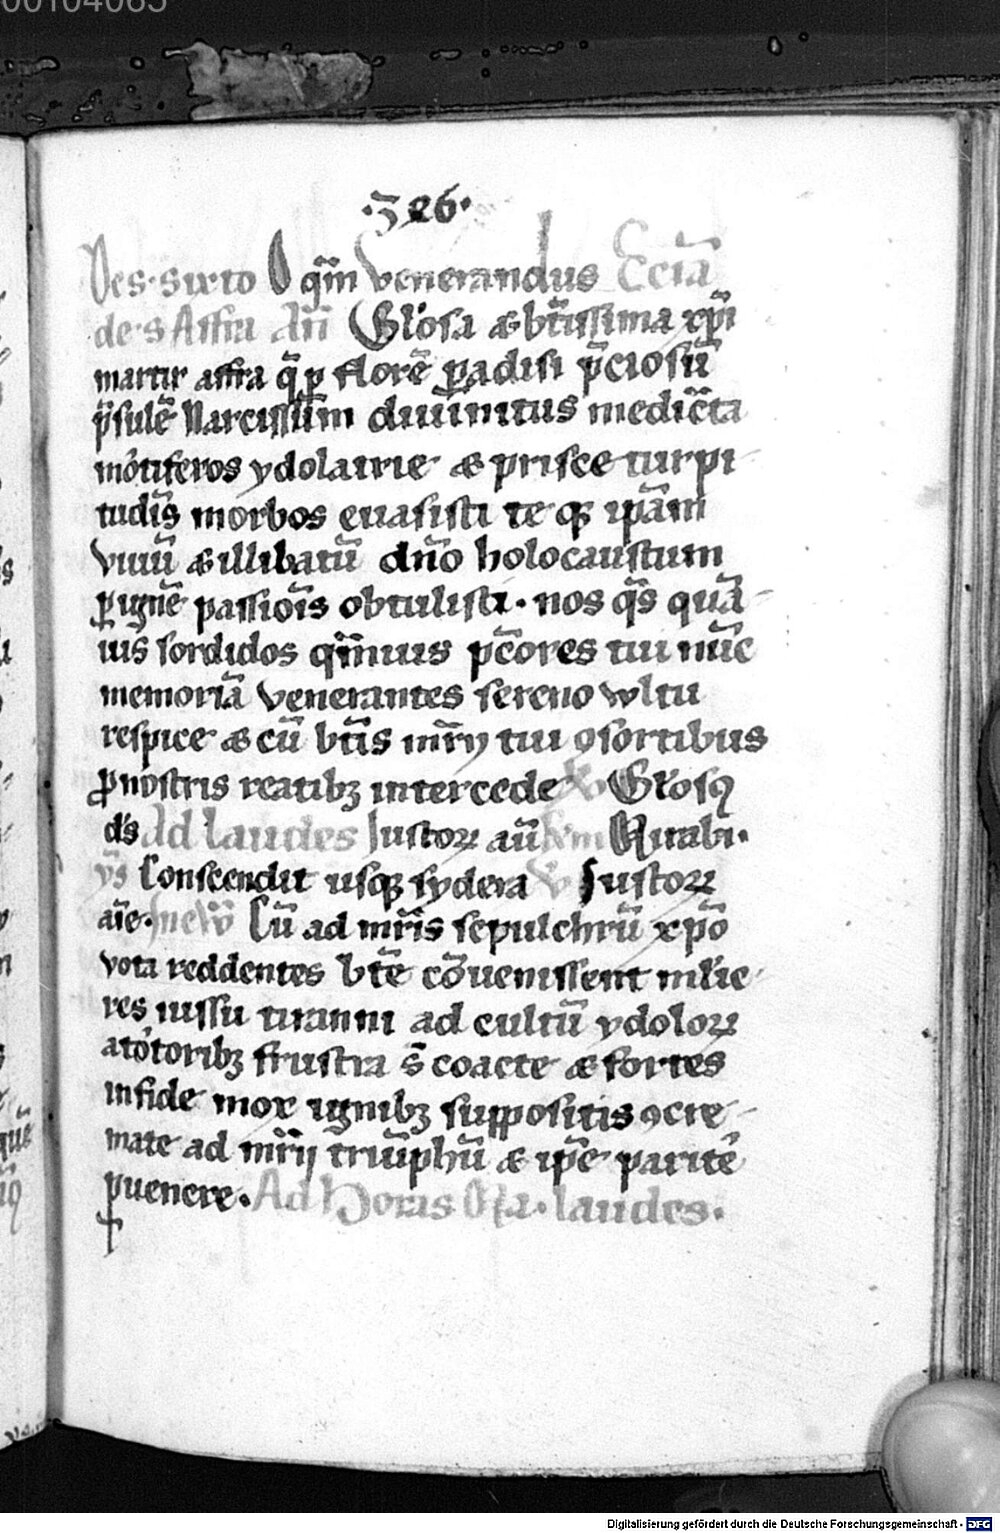 00104065
·326·
Des·sixto O qm̄ venerandus Ecia
de·s Affra an̄ Gl'osa & bt̄issima xp̄i
martir affra q̄ p florē ꝑadisi p̄ciosū
p̄sulē Narcissum diuinitus medic̄ta
mo'tiferos ydolatrie & prisce turpi-
tudis̄ morbos euasisti te qꝫ ip̄am
viuū & illibatū dn̄o holocaustum
ꝑ ignē passiōis obtulisti· nos q̄s quā-
uis sordidos qm̄uis pc̄ores tui nūc
memoriā venerantes sereno wltu
respice & cū bt̄is mr̄ij tui ꝯsortibus
ꝓ nostris reatibꝫ intercede Gl'osꝰ
ds̄ Ad laudes Iustoꝝ an̄ Mirabi·
ys̄ Conscendit usqꝫ sydera Iustoꝝ
aīe· Cū ad mr̄is sepulchrū xp̄o
vota reddentes bt̄e cōuenissent mlīe-
res iussu tiranni ad cultū ydoloꝝ
a to'toribꝫ frustra s̄ coacte & fortes
in fide mox ignibꝫ suppositis ꝯcre-
mate ad mr̄ij triūphū & ip̄e paritē
ꝑuenere· Ad Horas laudes·
Digitalisierung gefördert durch die Deutsche Forschungsgemeinschaft - DFG